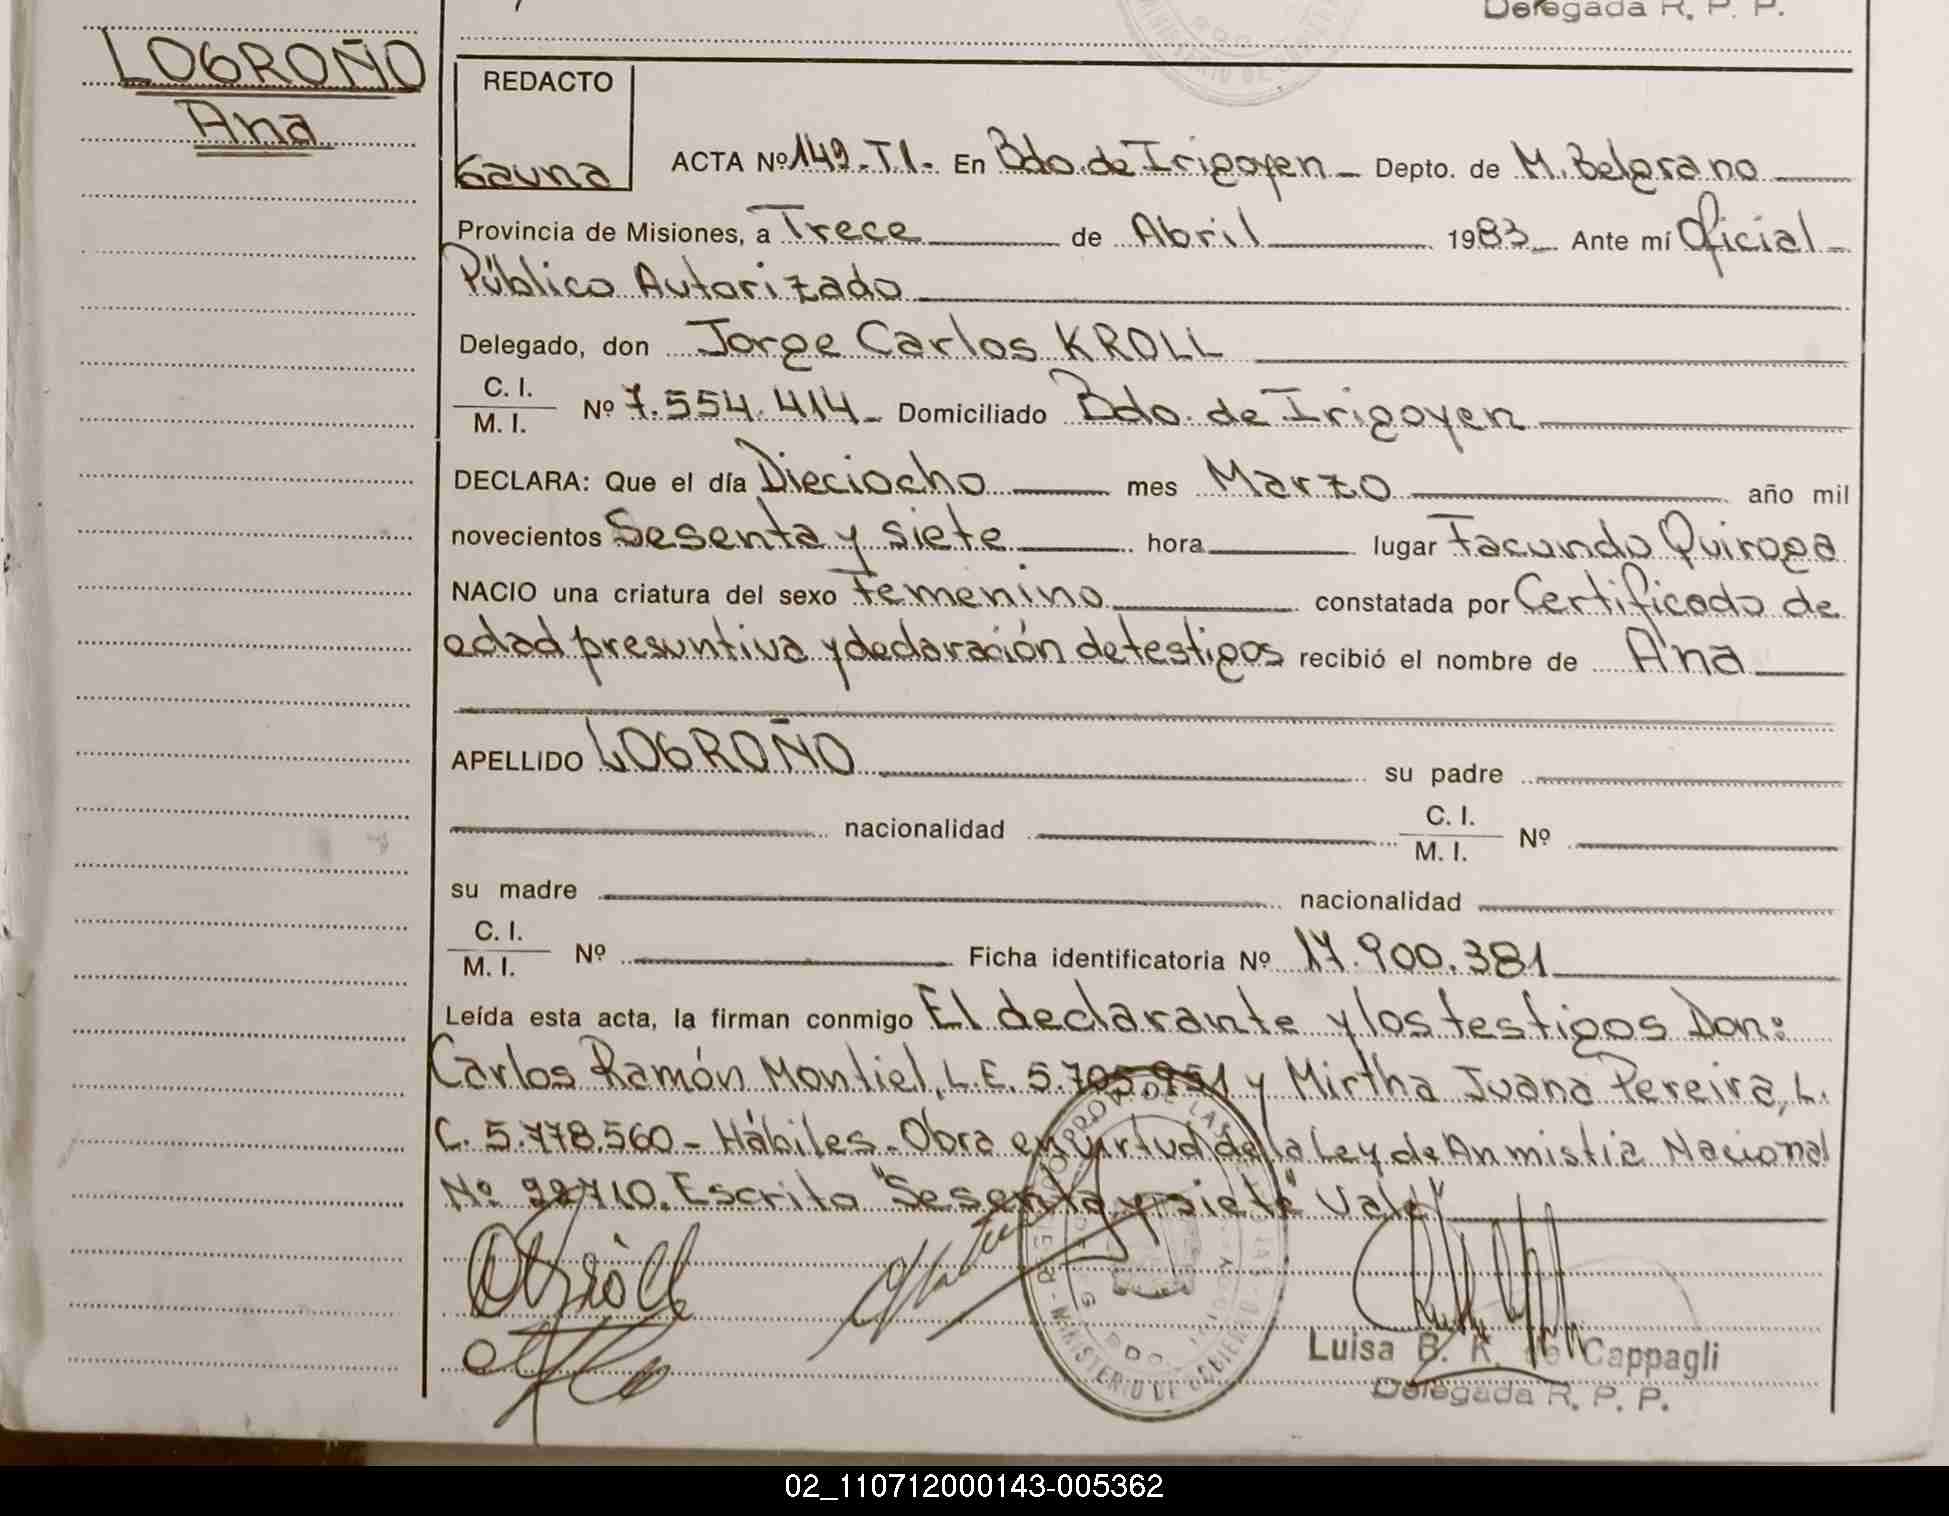 Delegada R. P. P.
LOGROÑO
Ana
REDACTO
Gauna
ACTA Nº 149-T1- En Bdo. de Irigoyen Depto. de M. Belgrano
Provincia de Misiones, a Trece de Abril 1983 Ante mí Oficial
Público Autorizado
Delegado, don Jorge Carlos KROLL
C. I.
M. I. Nº 7.554.414 Domiciliado Bdo. de Irigoyen
DECLARA: Que el día Dieciocho mes Marzo año mil
novecientos Sesenta y siete hora lugar Facundo Quiroga
NACIO una criatura del sexo Femenino constatada por Certificado de
edad presuntiva y declaración de testigos recibió el nombre de Ana
APELLIDO LOGROÑO su padre
nacionalidad C. I.
M. I. Nº
su madre nacionalidad
C. I.
M. I. Nº Ficha identificatoria Nº 17.900.381
Leída esta acta, la firman conmigo El declarante y los testigos Don:
Carlos Ramón Montiel, L.E. 5.705.951 y Mirtha Juana Pereira, L.
C. 5.778.560 - Hábiles - Obra en virtud de la Ley de Anmistia Nacional
Nº 22710. Escrito "Sesenta y siete" Vale
Luisa B. K. de Cappagli
Delegada R. P. P.
MINISTERIO DE GOBIERNO
02_110712000143-005362